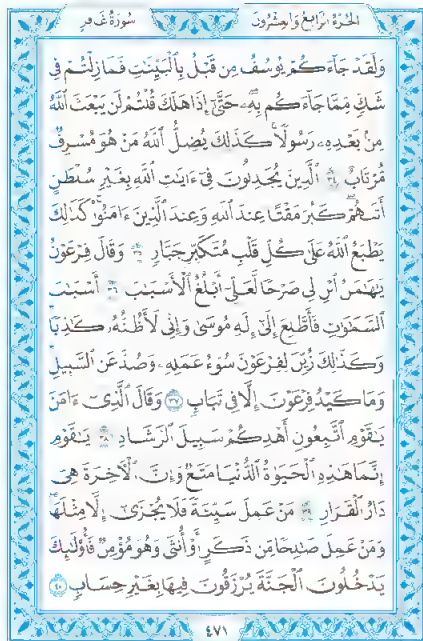 الجزء الرابع والعشرون
سورة غافر
وَلَقَدْ جَآءَكُمْ يُوسُفُ مِن قَبْلُ بِٱلْبَيِّنَٰتِ فَمَا زِلْتُمْ فِى
شَكٍّ مِّمَّا جَآءَكُم بِهِۦ حَتَّىٰٓ إِذَا هَلَكَ قُلْتُمْ لَن يَبْعَثَ ٱللَّهُ
مِنۢ بَعْدِهِۦ رَسُولًا كَذَٰلِكَ يُضِلُّ ٱللَّهُ مَنْ هُوَ مُسْرِفٌ
مُّرْتَابٌ ٣٤ ٱلَّذِينَ يُجَٰدِلُونَ فِىٓ ءَايَٰتِ ٱللَّهِ بِغَيْرِ سُلْطَٰنٍ
أَتَىٰهُمْ كَبُرَ مَقْتًا عِندَ ٱللَّهِ وَعِندَ ٱلَّذِينَ ءَامَنُوا۟ كَذَٰلِكَ
يَطْبَعُ ٱللَّهُ عَلَىٰ كُلِّ قَلْبِ مُتَكَبِّرٍ جَبَّارٍ ٣٥ وَقَالَ فِرْعَوْنُ
يَٰهَٰمَٰنُ ٱبْنِ لِى صَرْحًا لَّعَلِّىٓ أَبْلُغُ ٱلْأَسْبَٰبَ ٣٦ أَسْبَٰبَ
ٱلسَّمَٰوَٰتِ فَأَطَّلِعَ إِلَىٰٓ إِلَٰهِ مُوسَىٰ وَإِنِّى لَأَظُنُّهُۥ كَٰذِبًا
وَكَذَٰلِكَ زُيِّنَ لِفِرْعَوْنَ سُوٓءُ عَمَلِهِۦ وَصُدَّ عَنِ ٱلسَّبِيلِ
وَمَا كَيْدُ فِرْعَوْنَ إِلَّا فِى تَبَابٍ ٣٧ وَقَالَ ٱلَّذِىٓ ءَامَنَ
يَٰقَوْمِ ٱتَّبِعُونِ أَهْدِكُمْ سَبِيلَ ٱلرَّشَادِ ٣٨ يَٰقَوْمِ
إِنَّمَا هَٰذِهِ ٱلْحَيَوٰةُ ٱلدُّنْيَا مَتَٰعٌ وَإِنَّ ٱلْءَاخِرَةَ هِىَ
دَارُ ٱلْقَرَارِ ٣٩ مَنْ عَمِلَ سَيِّئَةً فَلَا يُجْزَىٰٓ إِلَّا مِثْلَهَا
وَمَنْ عَمِلَ صَٰلِحًا مِّن ذَكَرٍ أَوْ أُنثَىٰ وَهُوَ مُؤْمِنٌ فَأُو۟لَٰٓئِكَ
يَدْخُلُونَ ٱلْجَنَّةَ يُرْزَقُونَ فِيهَا بِغَيْرِ حِسَابٍ ٤٠
٤٧١